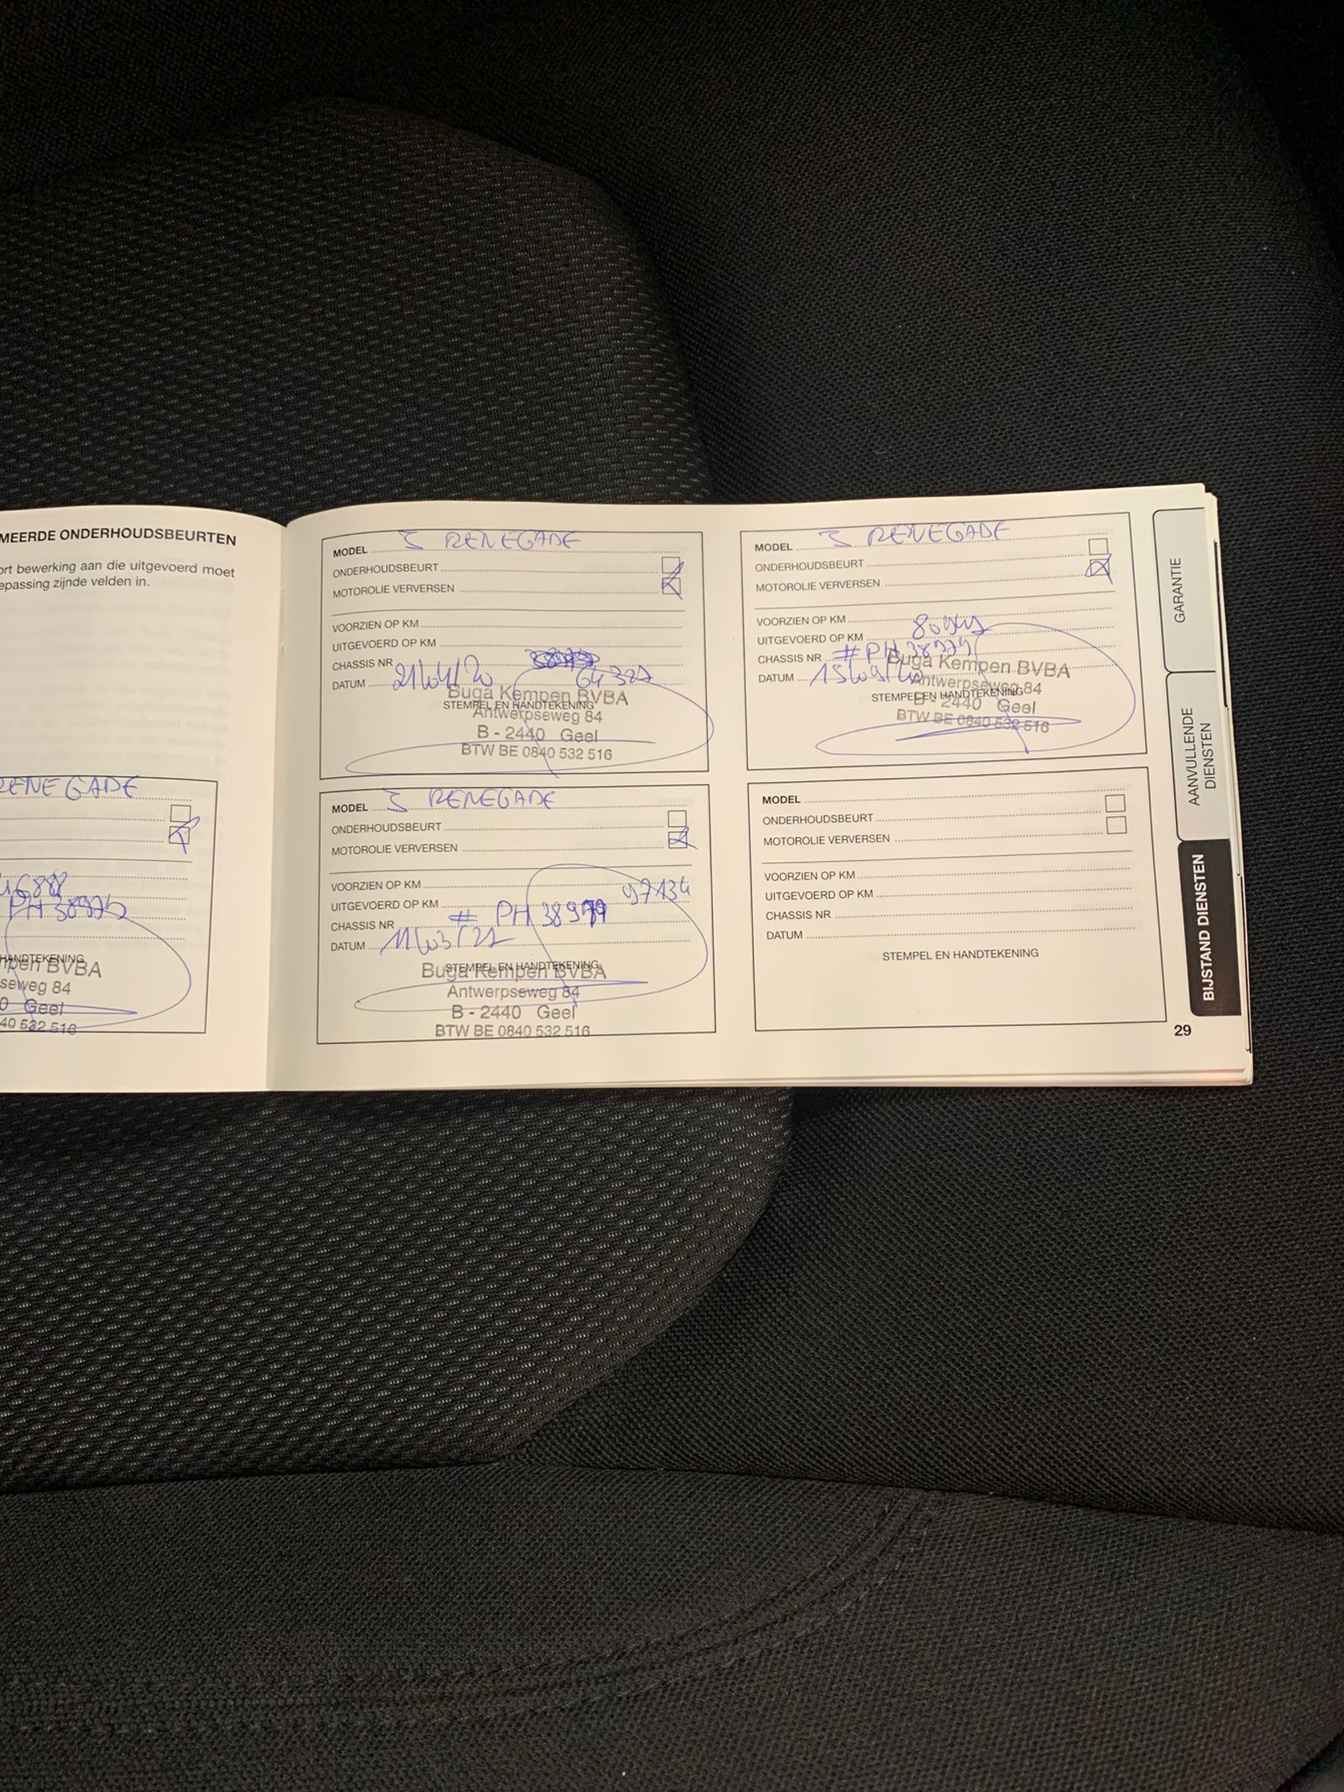 MEERDE ONDERHOUDSBEURTEN
ort bewerking aan die uitgevoerd moet
epassing zijnde velden in.
RENEGADE
46888
PH 38975
HANDTEKENING
mpen BVBA
seweg 84
0 Geel
40 532 516
MODEL J RENEGADE
ONDERHOUDSBEURT
MOTOROLIE VERVERSEN
VOORZIEN OP KM
UITGEVOERD OP KM
CHASSIS NR
64 327
DATUM 21/04/20
Buga Kempen BVBA
STEMPEL EN HANDTEKENING
Antwerpseweg 84
B - 2440 Geel
BTW BE 0840 532 516
MODEL J RENEGADE
ONDERHOUDSBEURT
MOTOROLIE VERVERSEN
VOORZIEN OP KM
UITGEVOERD OP KM 97134
CHASSIS NR # PH 38979
DATUM 11/03/21
STEMPEL EN HANDTEKENING
Buga Kempen BVBA
Antwerpseweg 84
B - 2440 Geel
BTW BE 0840 532 516
MODEL J RENEGADE
ONDERHOUDSBEURT
MOTOROLIE VERVERSEN
VOORZIEN OP KM
UITGEVOERD OP KM
CHASSIS NR
DATUM
Buga Kempen BVBA
Antwerpseweg 84
STEMPEL EN HANDTEKENING
B - 2440 Geel
BTW BE 0840 532 516
MODEL
ONDERHOUDSBEURT
MOTOROLIE VERVERSEN
VOORZIEN OP KM
UITGEVOERD OP KM
CHASSIS NR
DATUM
STEMPEL EN HANDTEKENING
GARANTIE
AANVULLENDE
DIENSTEN
BIJSTAND DIENSTEN
29